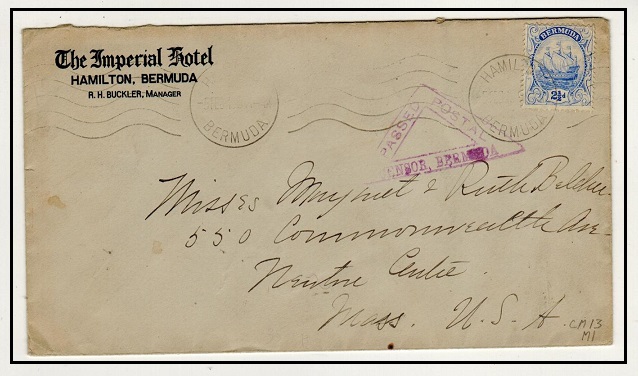 The Imperial Hotel
HAMILTON, BERMUDA
R. H. BUCKLER, MANAGER
HAMILT
BERMUDA
BERMUDA
2½d
HAMIL
BERMUDA
PASSED
POSTAL
ENSOR, BERMUDA
Misses Margaret & Ruth
550 Commonwealth Ave
Newton Centre
Mass. U. S. A.
CM13
M1